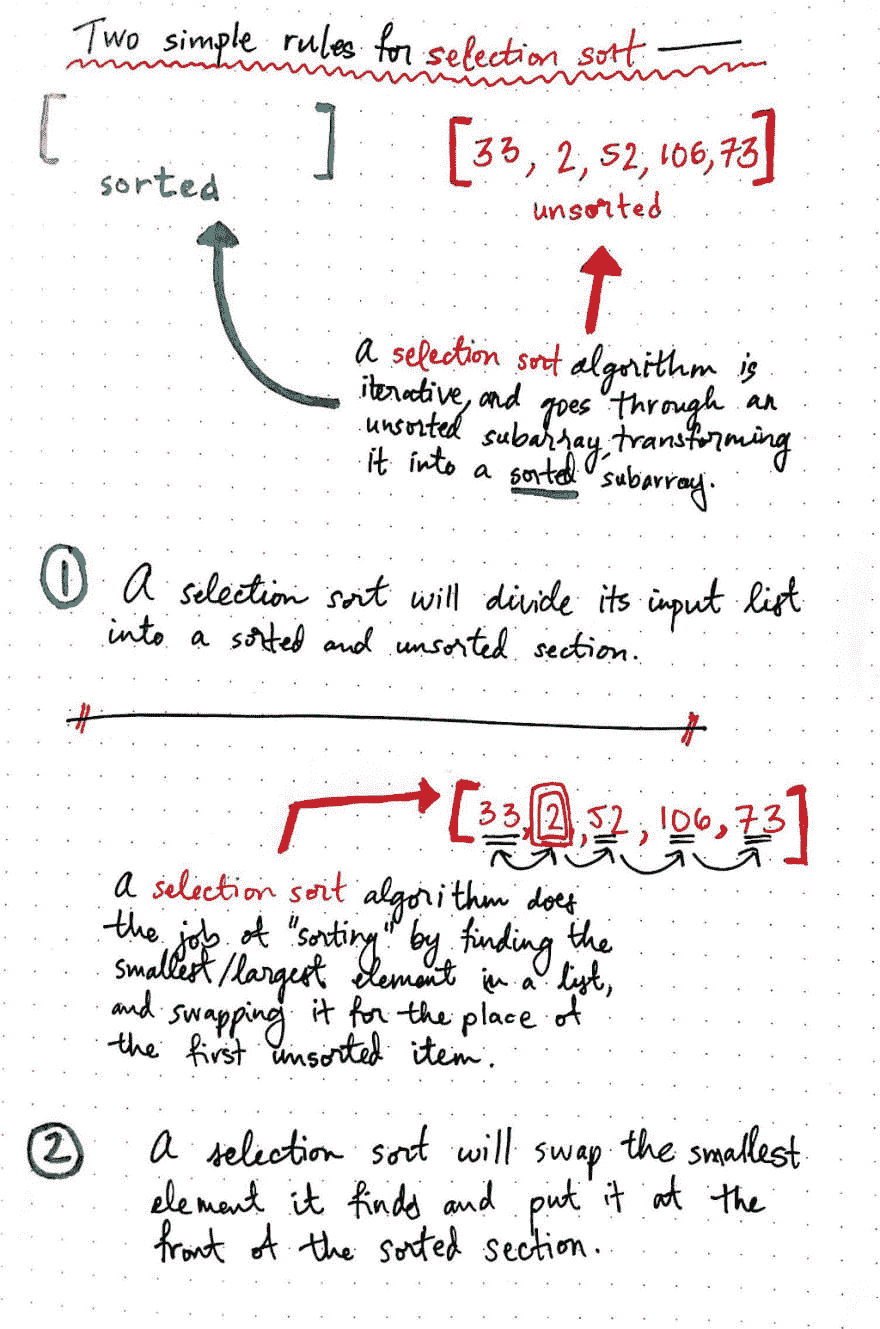 Two simple rules for selection sort —
[ ]
sorted
[33, 2, 52, 106, 73]
unsorted
A selection sort algorithm is
iterative, and goes through an
unsorted subarray, transforming
it into a sorted subarray.
1 A selection sort will divide its input list
into a sorted and unsorted section.
[33, 2, 52, 106, 73]
A selection sort algorithm does
the job of "sorting" by finding the
smallest/largest element in a list,
and swapping it for the place of
the first unsorted item.
2 A selection sort will swap the smallest
element it finds and put it at the
front of the sorted section.